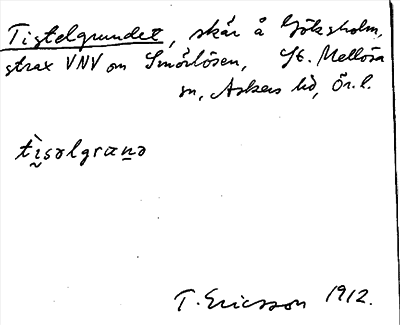 Tistelgrundet, skär å Göksholm,
strax VNV om Smörlösen, St. Mellösa
sn, Askers hd, Ör. l.
tìsəlgranə
T. Ericsson 1912.